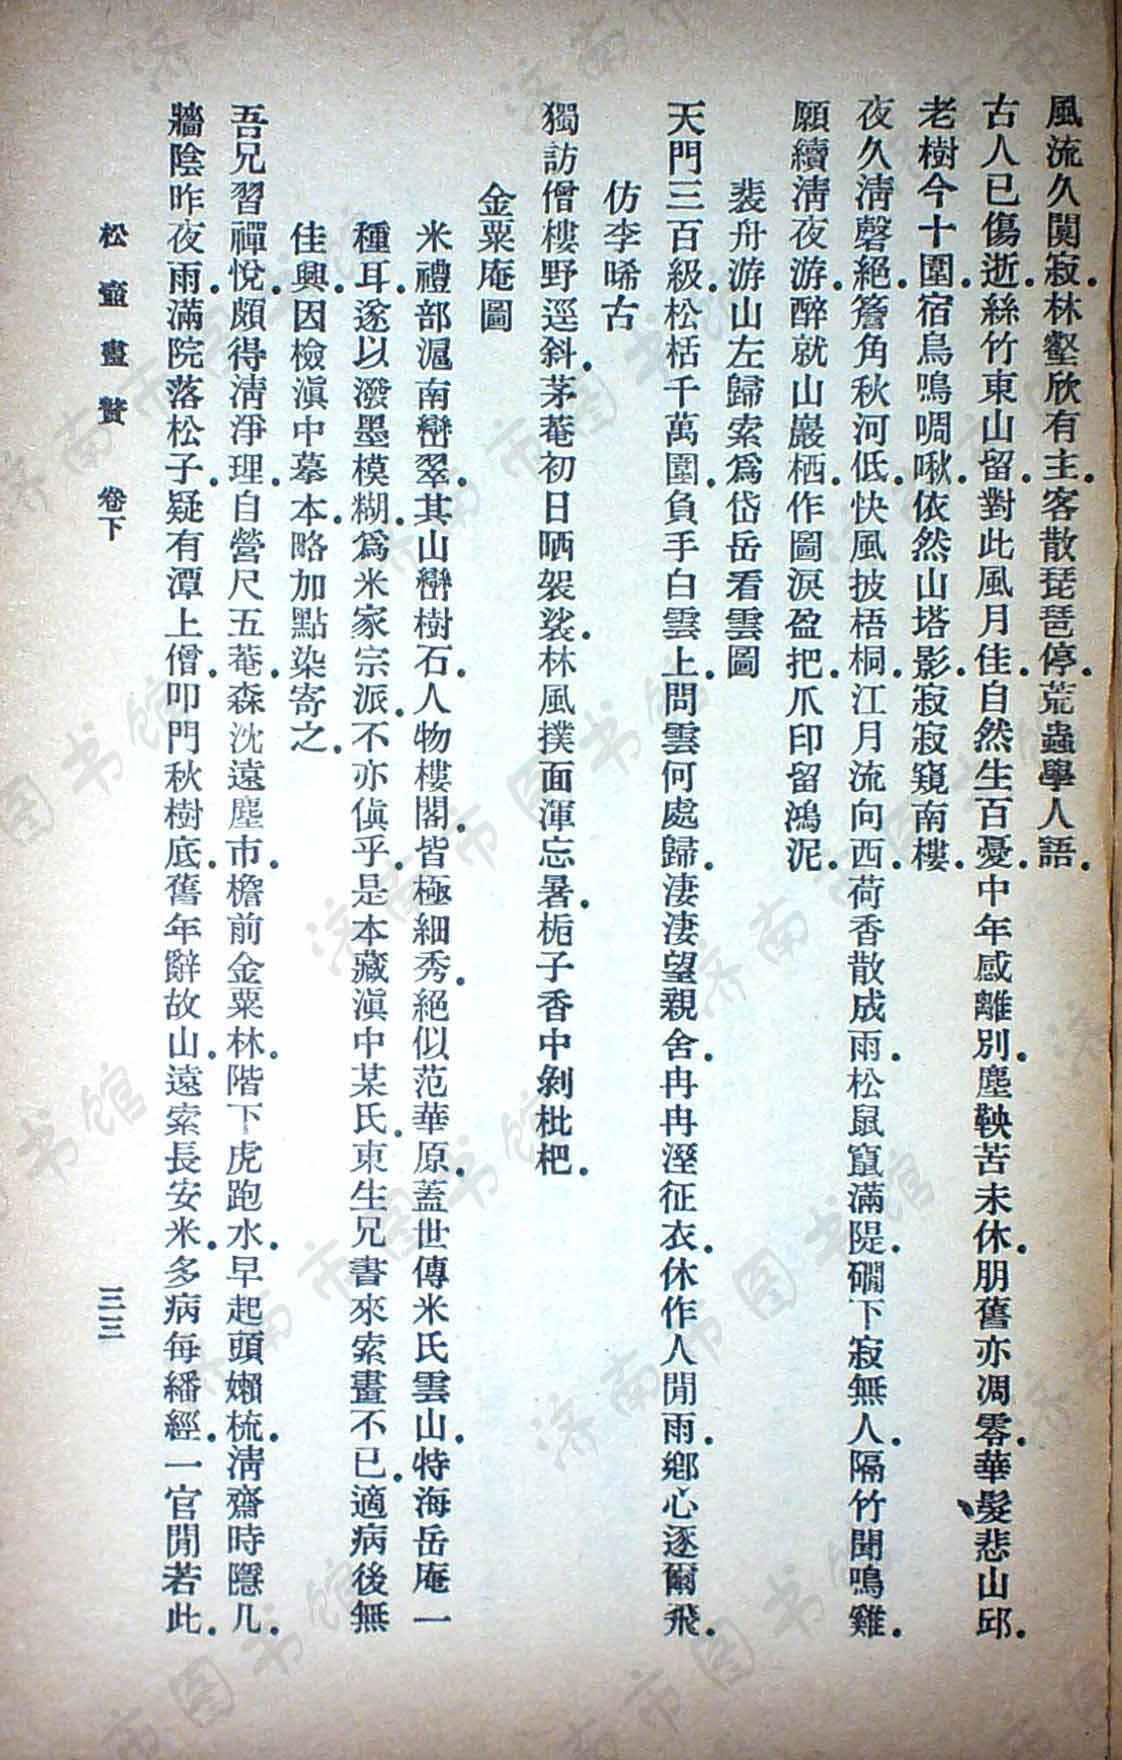 風流久闃寂林壑欣有主客散琵琶停荒蟲學人語
古人已傷逝絲竹東山留對此風月佳自然生百憂中年感離別塵鞅苦未休朋舊亦凋零華髮悲山邱
老樹今十圍宿鳥鳴啁啾依然山塔影寂寂窺南樓
夜久淸磬絕簷角秋河低快風披梧桐江月流向西荷香散成雨松鼠竄滿隄磵下寂無人隔竹聞鳴雞
願續淸夜游醉就山巖栖作圖淚盈把爪印留鴻泥
裴舟游山左歸索爲岱岳看雲圖
天門三百級松栝千萬圍負手白雲上問雲何處歸淒淒望親舍冉冉溼征衣休作人閒雨鄉心逐爾飛
仿李晞古
獨訪僧樓野逕斜茅菴初日晒袈裟林風撲面渾忘暑梔子香中剝枇杷
金粟庵圖
米禮部滬南巒翠其山巒樹石人物樓閣皆極細秀絕似范華原蓋世傳米氏雲山特海岳庵一
種耳遂以潑墨模糊爲米家宗派不亦傎乎是本藏滇中某氏東生兄書來索畫不已適病後無
佳興因檢滇中摹本略加點染寄之
吾兄習禪悅頗得淸淨理自營尺五菴森沈遠塵市檐前金粟林階下虎跑水早起頭嬾梳淸齋時隱几
牆陰昨夜雨滿院落松子疑有潭上僧叩門秋樹底舊年辭故山遠索長安米多病每繙經一官閒若此
松壺畫贅 卷下 三三
济南市图书馆